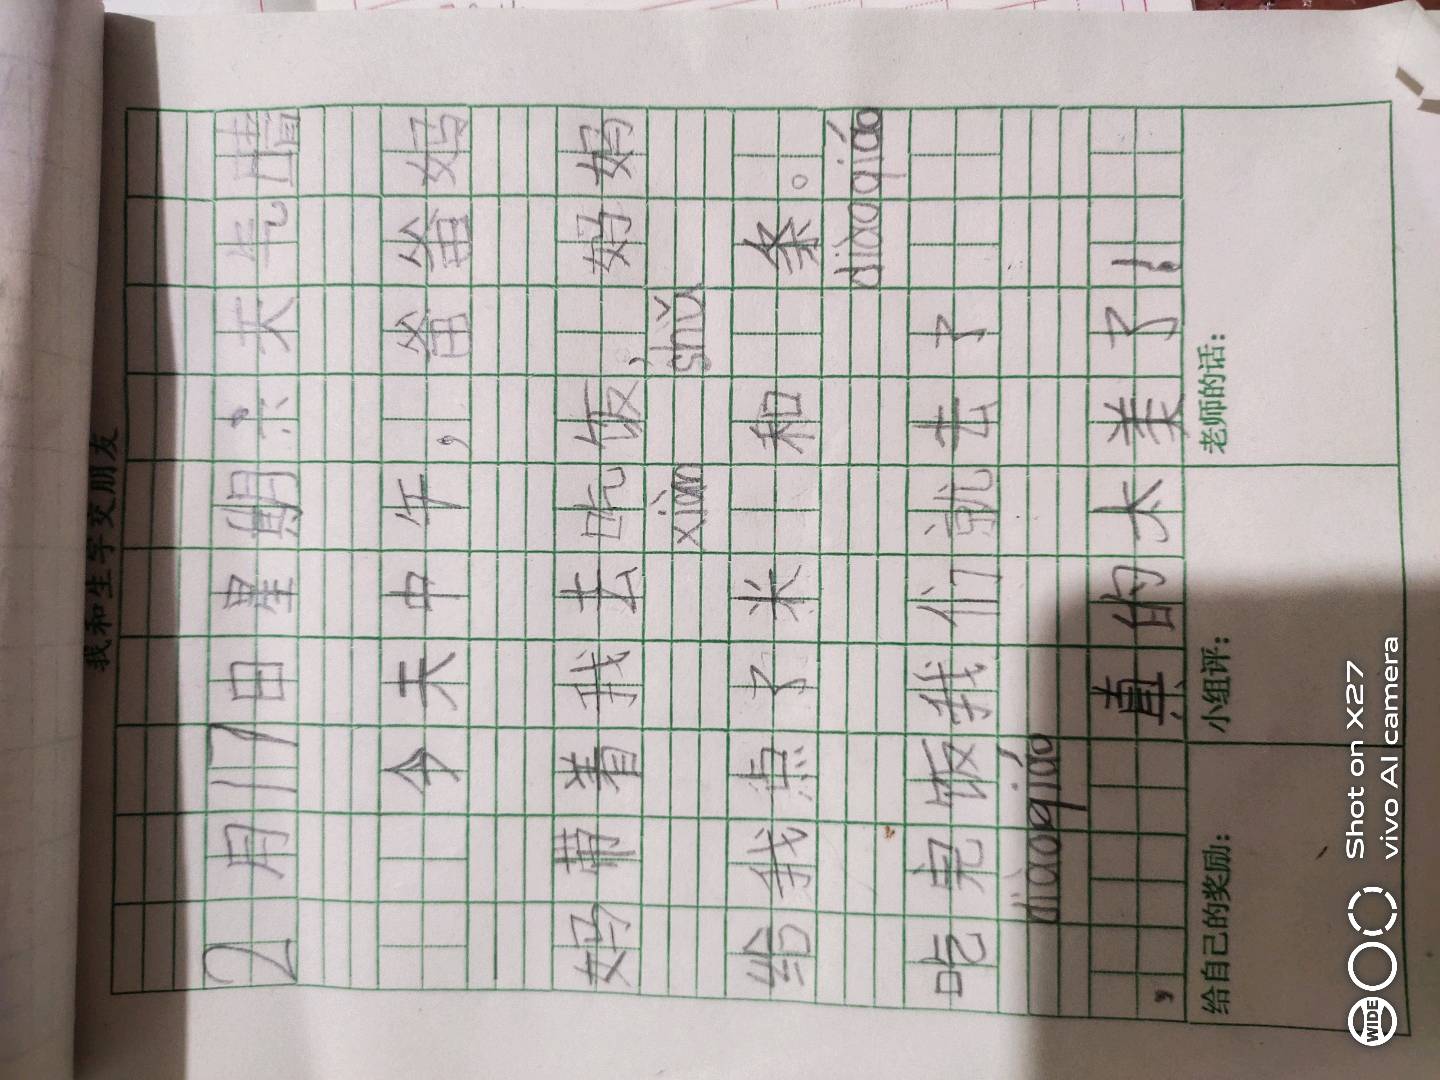 我和生字交朋友
2月17日 星期六 天气晴
今天中午，爸爸妈
妈带着我去吃饭，妈妈
xiàn shǔ
给我点了米 和 条。
diàoqiáo
吃完饭我们就去了
diàoqiáo
，真的太美了！
给自己的奖励：
小组评：
老师的话：
WIDE
Shot on X27
vivo AI camera